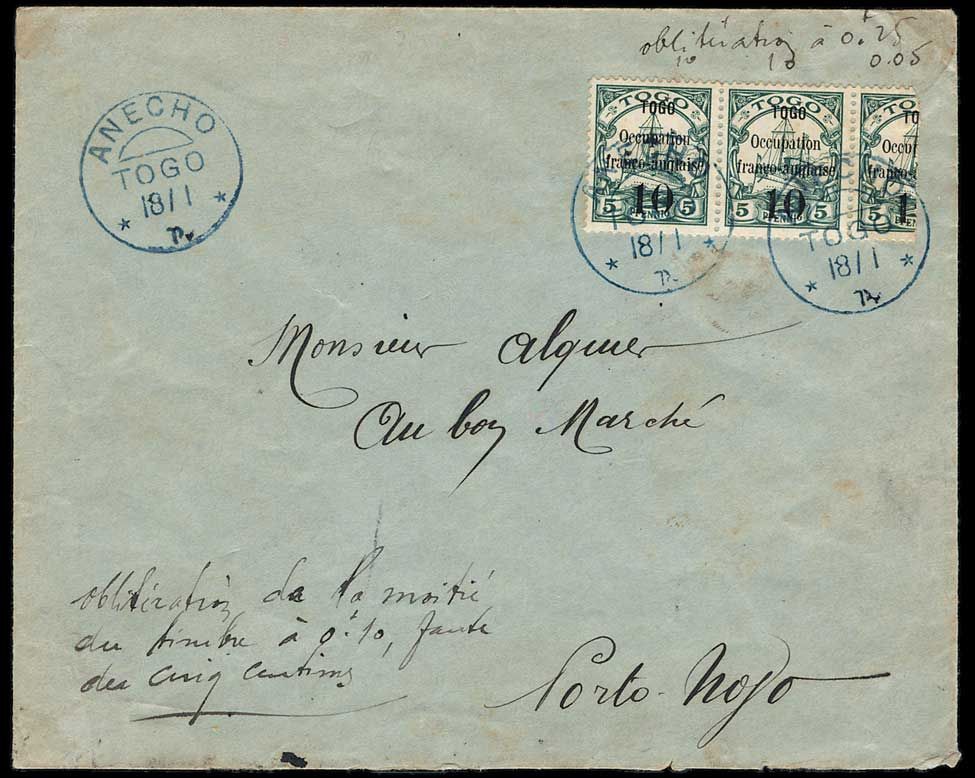 oblitération à 0.f 25
10 10 0.05
ANECHO
TOGO
18/1
TOGO
TOGO
Occupation
franco-anglaise
10
5 PFENNIG 5
TOGO
TOGO
Occupation
franco-anglaise
10
5 PFENNIG 5
TO
TO
Occup
franco-
1
5 PFEN
TOGO
18/1
TOGO
18/1
Monsieur Alquier
Au bon Marché
oblitération de la moitié
du timbre à 0.f 10, faute
des cinq centimes
Porto-Novo